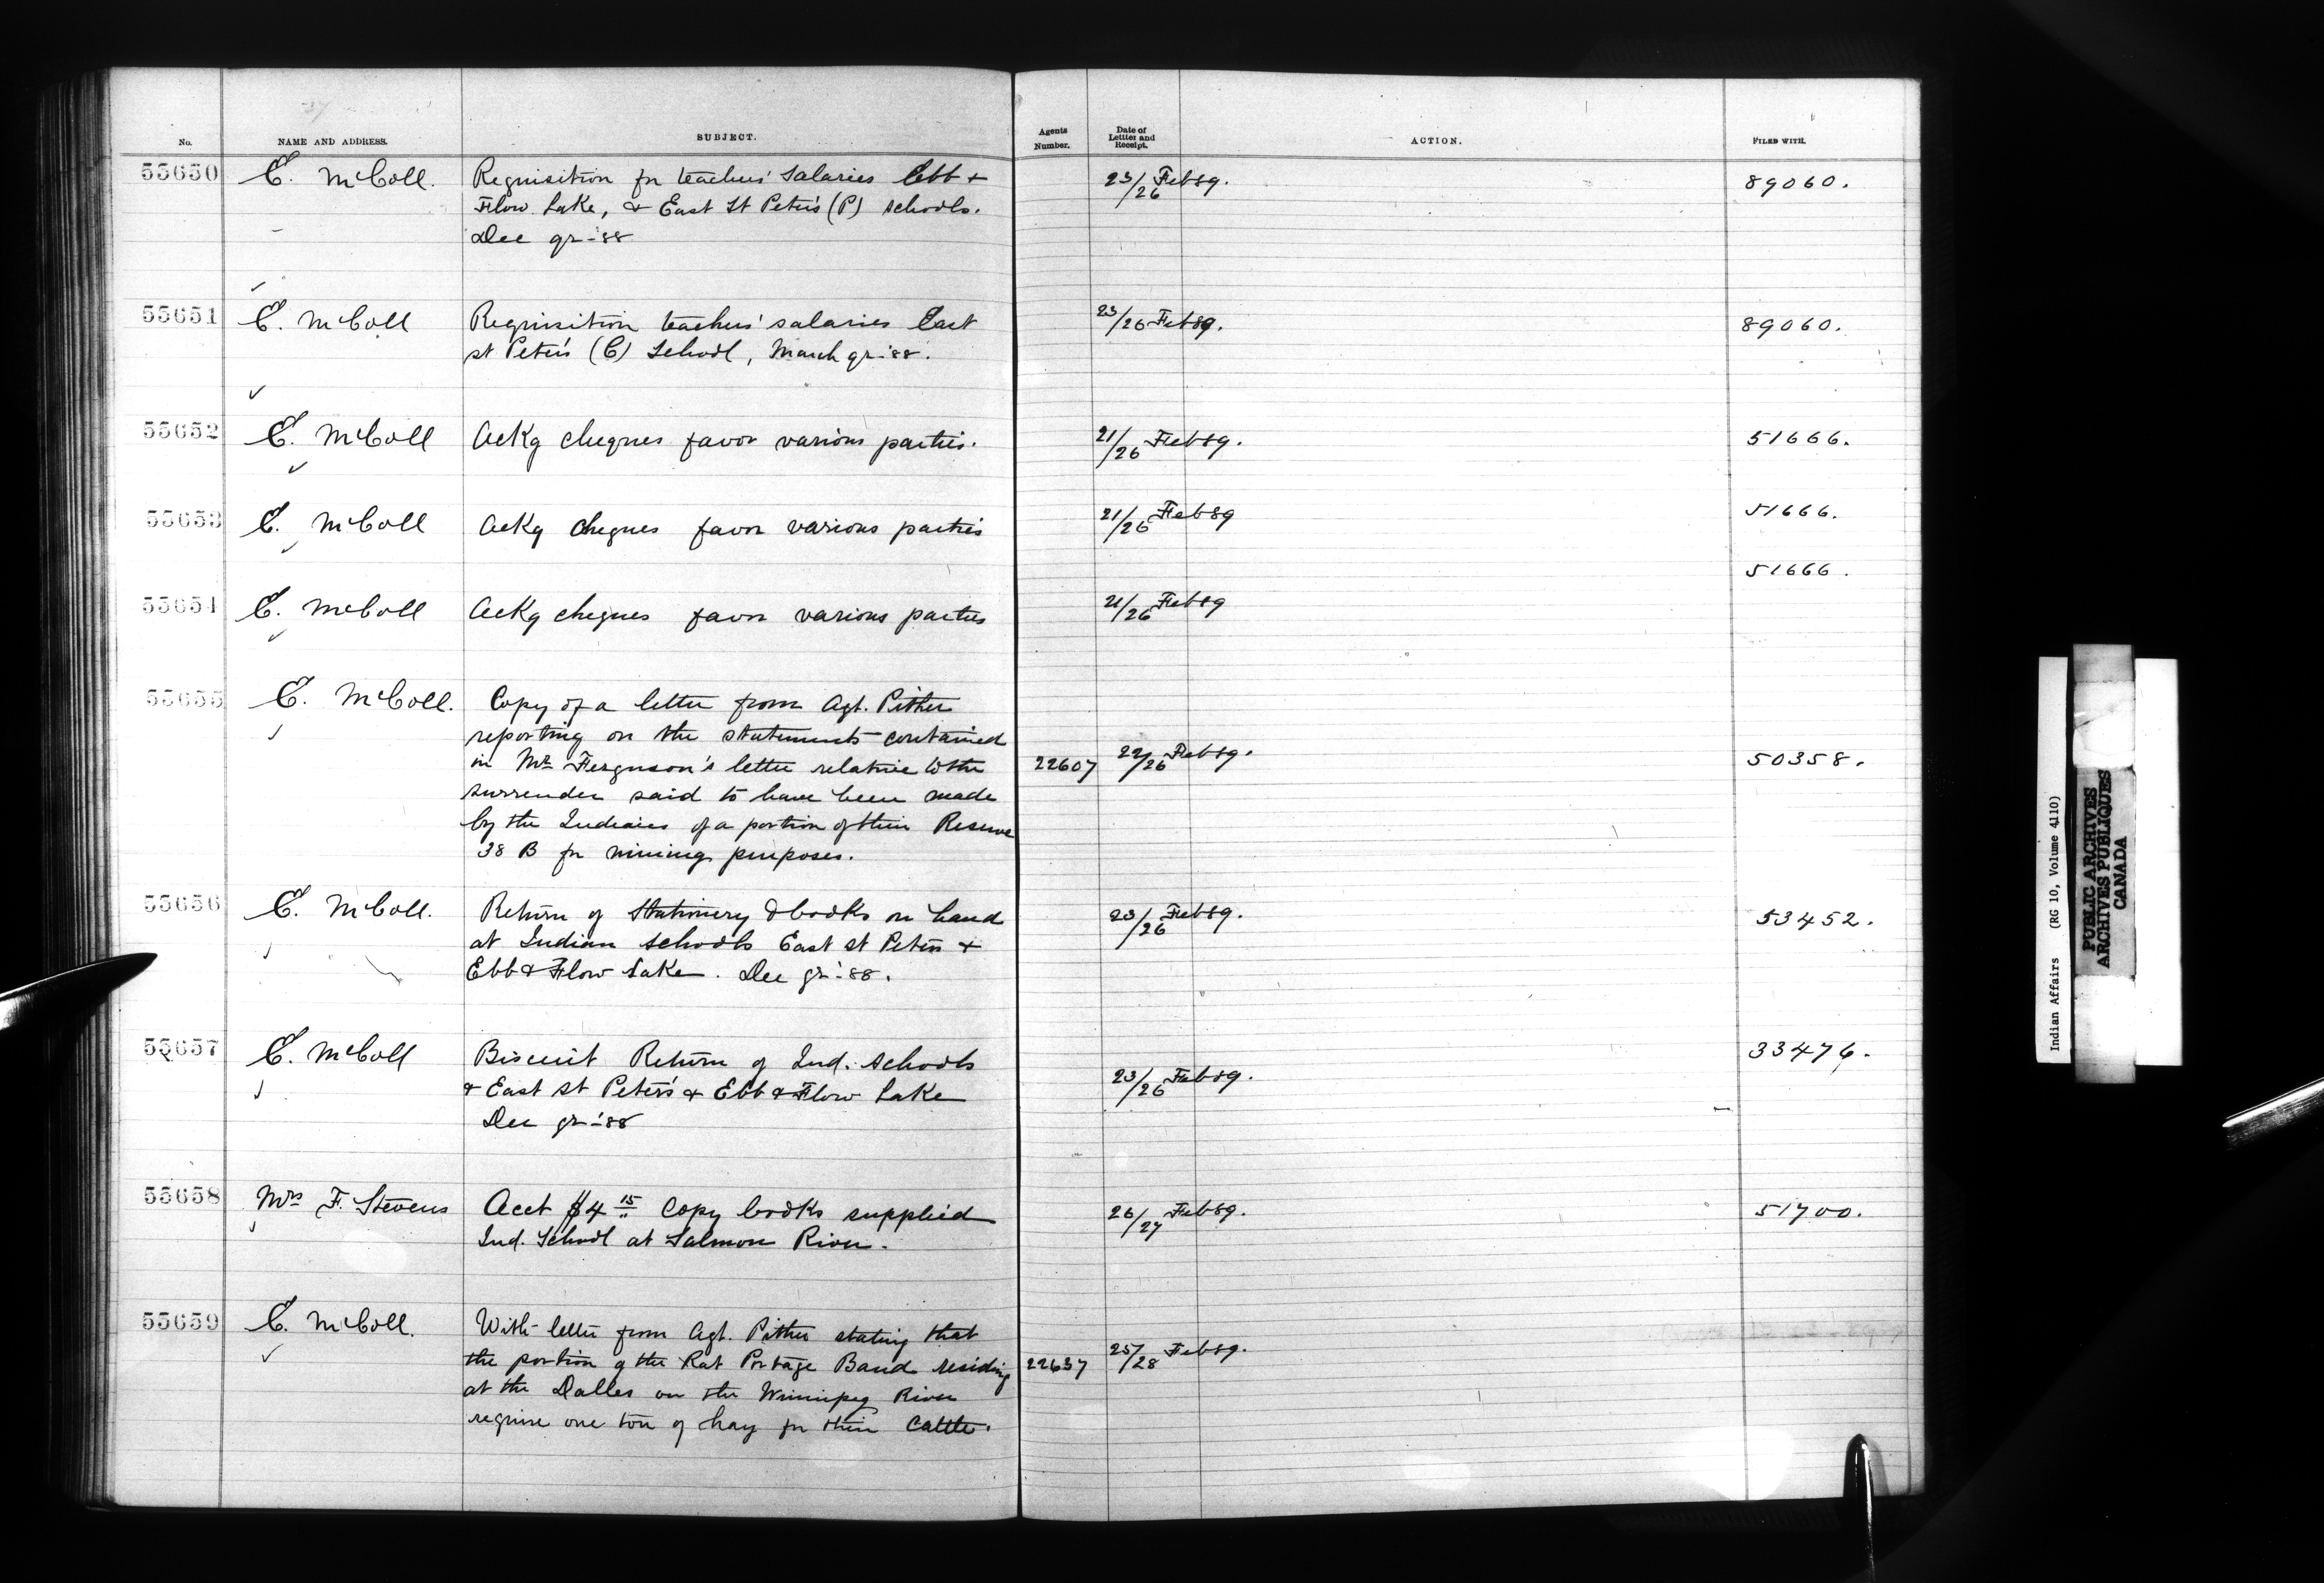 No. NAME AND ADDRESS. SUBJECT. Agents Number. Date of Lettter and Receipt. ACTION. FILED WITH.
55650 E. McColl. Requisition for teachers' salaries Ebb & 23/26 Feb 89. 89060.
Flow Lake, & East St Peter's (P) schools.
Dec qr-'88
55651 E. McColl Requisition teachers' salaries East 23/26 Feb 89. 89060.
st Peter's (C) School, March qr-'88.
55652 E. McColl Ackg cheques favor various parties. 21/26 Feb 89. 51666.
55653 E. McColl Ackg cheques favor various parties 21/26 Feb 89 51666.
51666.
55654 E. McColl Ackg cheques favor various parties 21/26 Feb 89
55655 E. McColl. Copy of a letter from Agt. Pither
reporting on the statements contained
in Mr Ferguson's letter relative to the 22607 22/26 Feb 89. 50358.
surrender said to have been made
by the Indians of a portion of their Reserve
38 B for mining purposes.
55656 E. McColl. Return of Stationery & books on hand 23/26 Feb 89. 53452.
at Indian schools East st Peters &
Ebb & Flow Lake. Dec qr-'88.
55657 E. McColl Biscuit Return of Ind. schools 33476.
& East st Peter's & Ebb & Flow Lake 23/26 Feb 89.
Dec qr-'88
55658 Mrs F. Stevens Acct $4 15 Copy books supplied 26/27 Feb 89. 51700.
Ind. School at Salmon River.
55659 E. McColl. With letter from Agt. Pither stating that
the portion of the Rat Portage Band residing 22637 25/28 Feb 89.
at the Dalles on the Winnipeg River
require one ton of hay for their cattle.
Indian Affairs (RG 10, Volume 4110)
PUBLIC ARCHIVES
ARCHIVES PUBLIQUES
CANADA